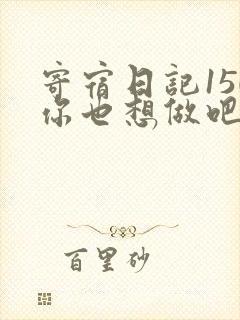 寄宿日記15
你也想做吧
百里砂